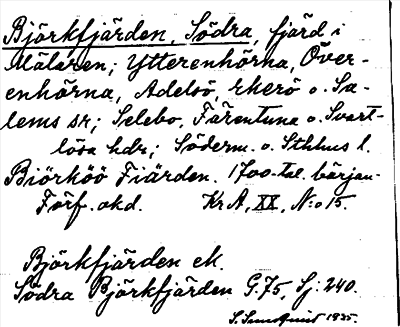 Björkfjärden, Södra, fjärd i
Mälaren; Ytterenhörna, Över-
enhörna, Adelsö, Ekerö o. Sa-
lems sr; Selebo, Färentuna o. Svart-
lösa hdr; Söderm. o. Sthlms l.
Biörköö Fiärden. 1700-tal. början-
Förf. okd. KrA, XX, N:o 15.
Björkfjärden ek.
Södra Björkfjärden G.75, Sj: 240.
1935.